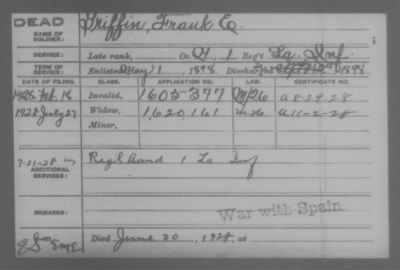 DEAD
Griffin, Frank E.
NAME OF SOLDIER:
SERVICE: Late rank, Co. H, 1 Reg't La. Inf.
TERM OF SERVICE: Enlisted May 1, 1898, Discharged 1898
DATE OF FILING. CLASS. APPLICATION NO. LAW. CERTIFICATE NO.
1928 Feb. 18 Invalid, 1605-377 A 8-29-28
1928 July 27 Widow, 1,620,161 A 11-2-28
Minor,
7-31-28
ADDITIONAL SERVICES: Regl Band 1 La Inf
REMARKS: War with Spain
Died June 20, 1928, at